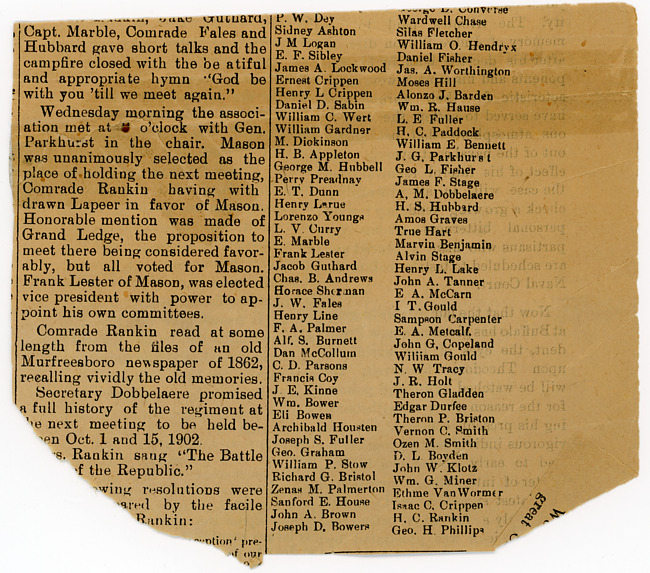 Rankin, Jake Guthard,
Capt. Marble, Comrade Fales and
Hubbard gave short talks and the
campfire closed with the be atiful
and appropriate hymn "God be
with you 'till we meet again."
Wednesday morning the associ-
ation met at o'clock with Gen.
Parkhurst in the chair. Mason
was unanimously selected as the
place of holding the next meeting,
Comrade Rankin having with
drawn Lapeer in favor of Mason.
Honorable mention was made of
Grand Ledge, the proposition to
meet there being considered favor-
ably, but all voted for Mason.
Frank Lester of Mason, was elected
vice president with power to ap-
point his own committees.
Comrade Rankin read at some
length from the files of an old
Murfreesboro newspaper of 1862,
recalling vividly the old memories.
Secretary Dobbelaere promised
a full history of the regiment at
the next meeting to be held be-
een Oct. 1 and 15, 1902.
s. Rankin sang "The Battle
of the Republic."
wing resolutions were
ared by the facile
Rankin:
ception' pre-
of our
P. W. Dey
Sidney Ashton
J M Logan
E. F. Sibley
James A. Lockwood
Ernest Crippen
Henry L Crippen
Daniel D. Sabin
William C. Wert
William Gardner
M. Dickinson
H. B. Appleton
George M. Hubbell
Perry Preadnay
E. T. Dunn
Henry Larue
Lorenzo Youngs
L. V. Curry
E. Marble
Frank Lester
Jacob Guthard
Chas. B. Andrews
Horace Sherman
J. W. Fales
Henry Line
F. A. Palmer
Alf. S. Burnett
Dan McCollum
C. D. Parsons
Francis Coy
J. E. Kinne
Wm. Bower
Eli Bowen
Archibald Housten
Joseph S. Fuller
Geo. Graham
William P. Stow
Richard G. Bristol
Zenas M. Palmerton
Sanford E. House
John A. Brown
Joseph D. Bowers
George L. Converse
Wardwell Chase
Silas Fletcher
William O. Hendryx
Daniel Fisher
Jas. A. Worthington
Moses Hill
Alonzo J. Barden
Wm. R. Hause
L. E Fuller
H. C. Paddock
William E. Bennett
J. G. Parkhurst
Geo L. Fisher
James F. Stage
A, M. Dobbelaere
H. S. Hubbard
Amos Graves
True Hart
Marvin Benjamin
Alvin Stage
Henry L. Lake
John A. Tanner
E A. McCarn
I T. Gould
Sampson Carpenter
E. A. Metcalf.
John G, Copeland
William Gould
N. W Tracy
J. R. Holt
Theron Gladden
Edgar Durfee
Theron P. Briston
Vernon C. Smith
Ozen M. Smith
D. L Boyden
John W. Klotz
Wm. G. Miner
Ethme VanWormer
Isaac C. Crippen
H. C. Rankin
Geo. H. Phillips
great